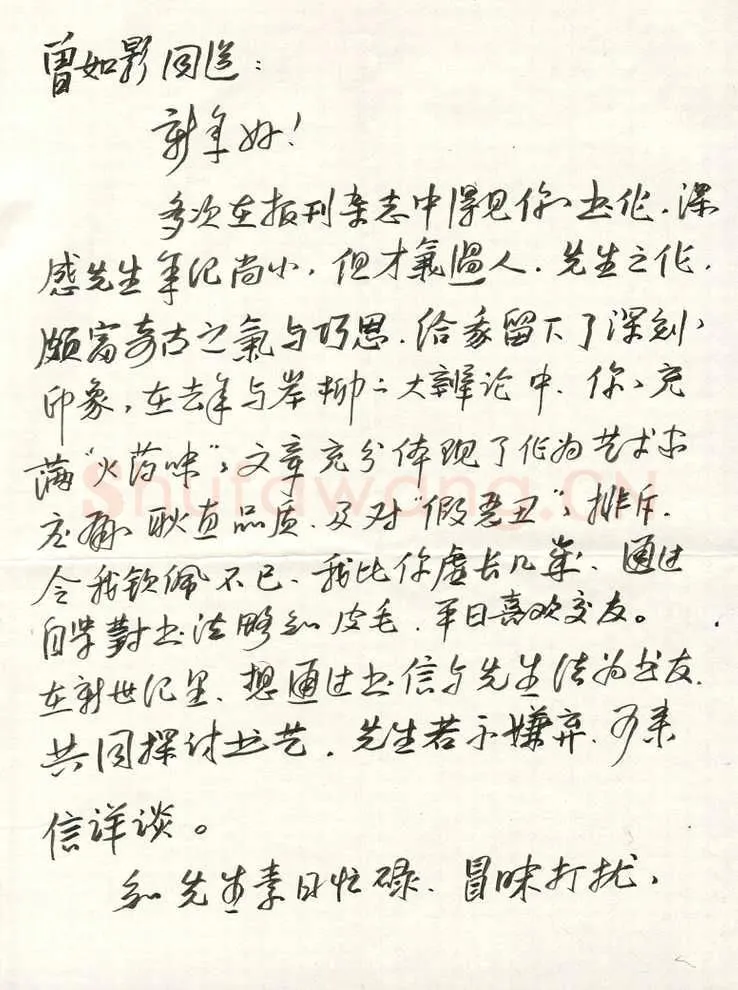 曾如影同道:
新年好!
多次在报刊杂志中得见你的书作,深
感先生年纪尚小,但才氣過人。先生之作,
頗富奇古之氣与巧思,给我留下了深刻
印象,在去年与岑柳二大辯论中,你、充
满“火药味”的文章充分体现了作为艺术家
应有的耿直品质,及对“假恶丑”的排斥,
令我钦佩不已、我比你虚长几歲、通过
自学對书法略知皮毛,平日喜欢交友。
在新世纪里、想通过书信与先生结为书友,
共同探讨书艺。先生若不嫌弃、可来
信详谈。
知先生素日忙碌、冒昧打扰,
Shufawang.CN